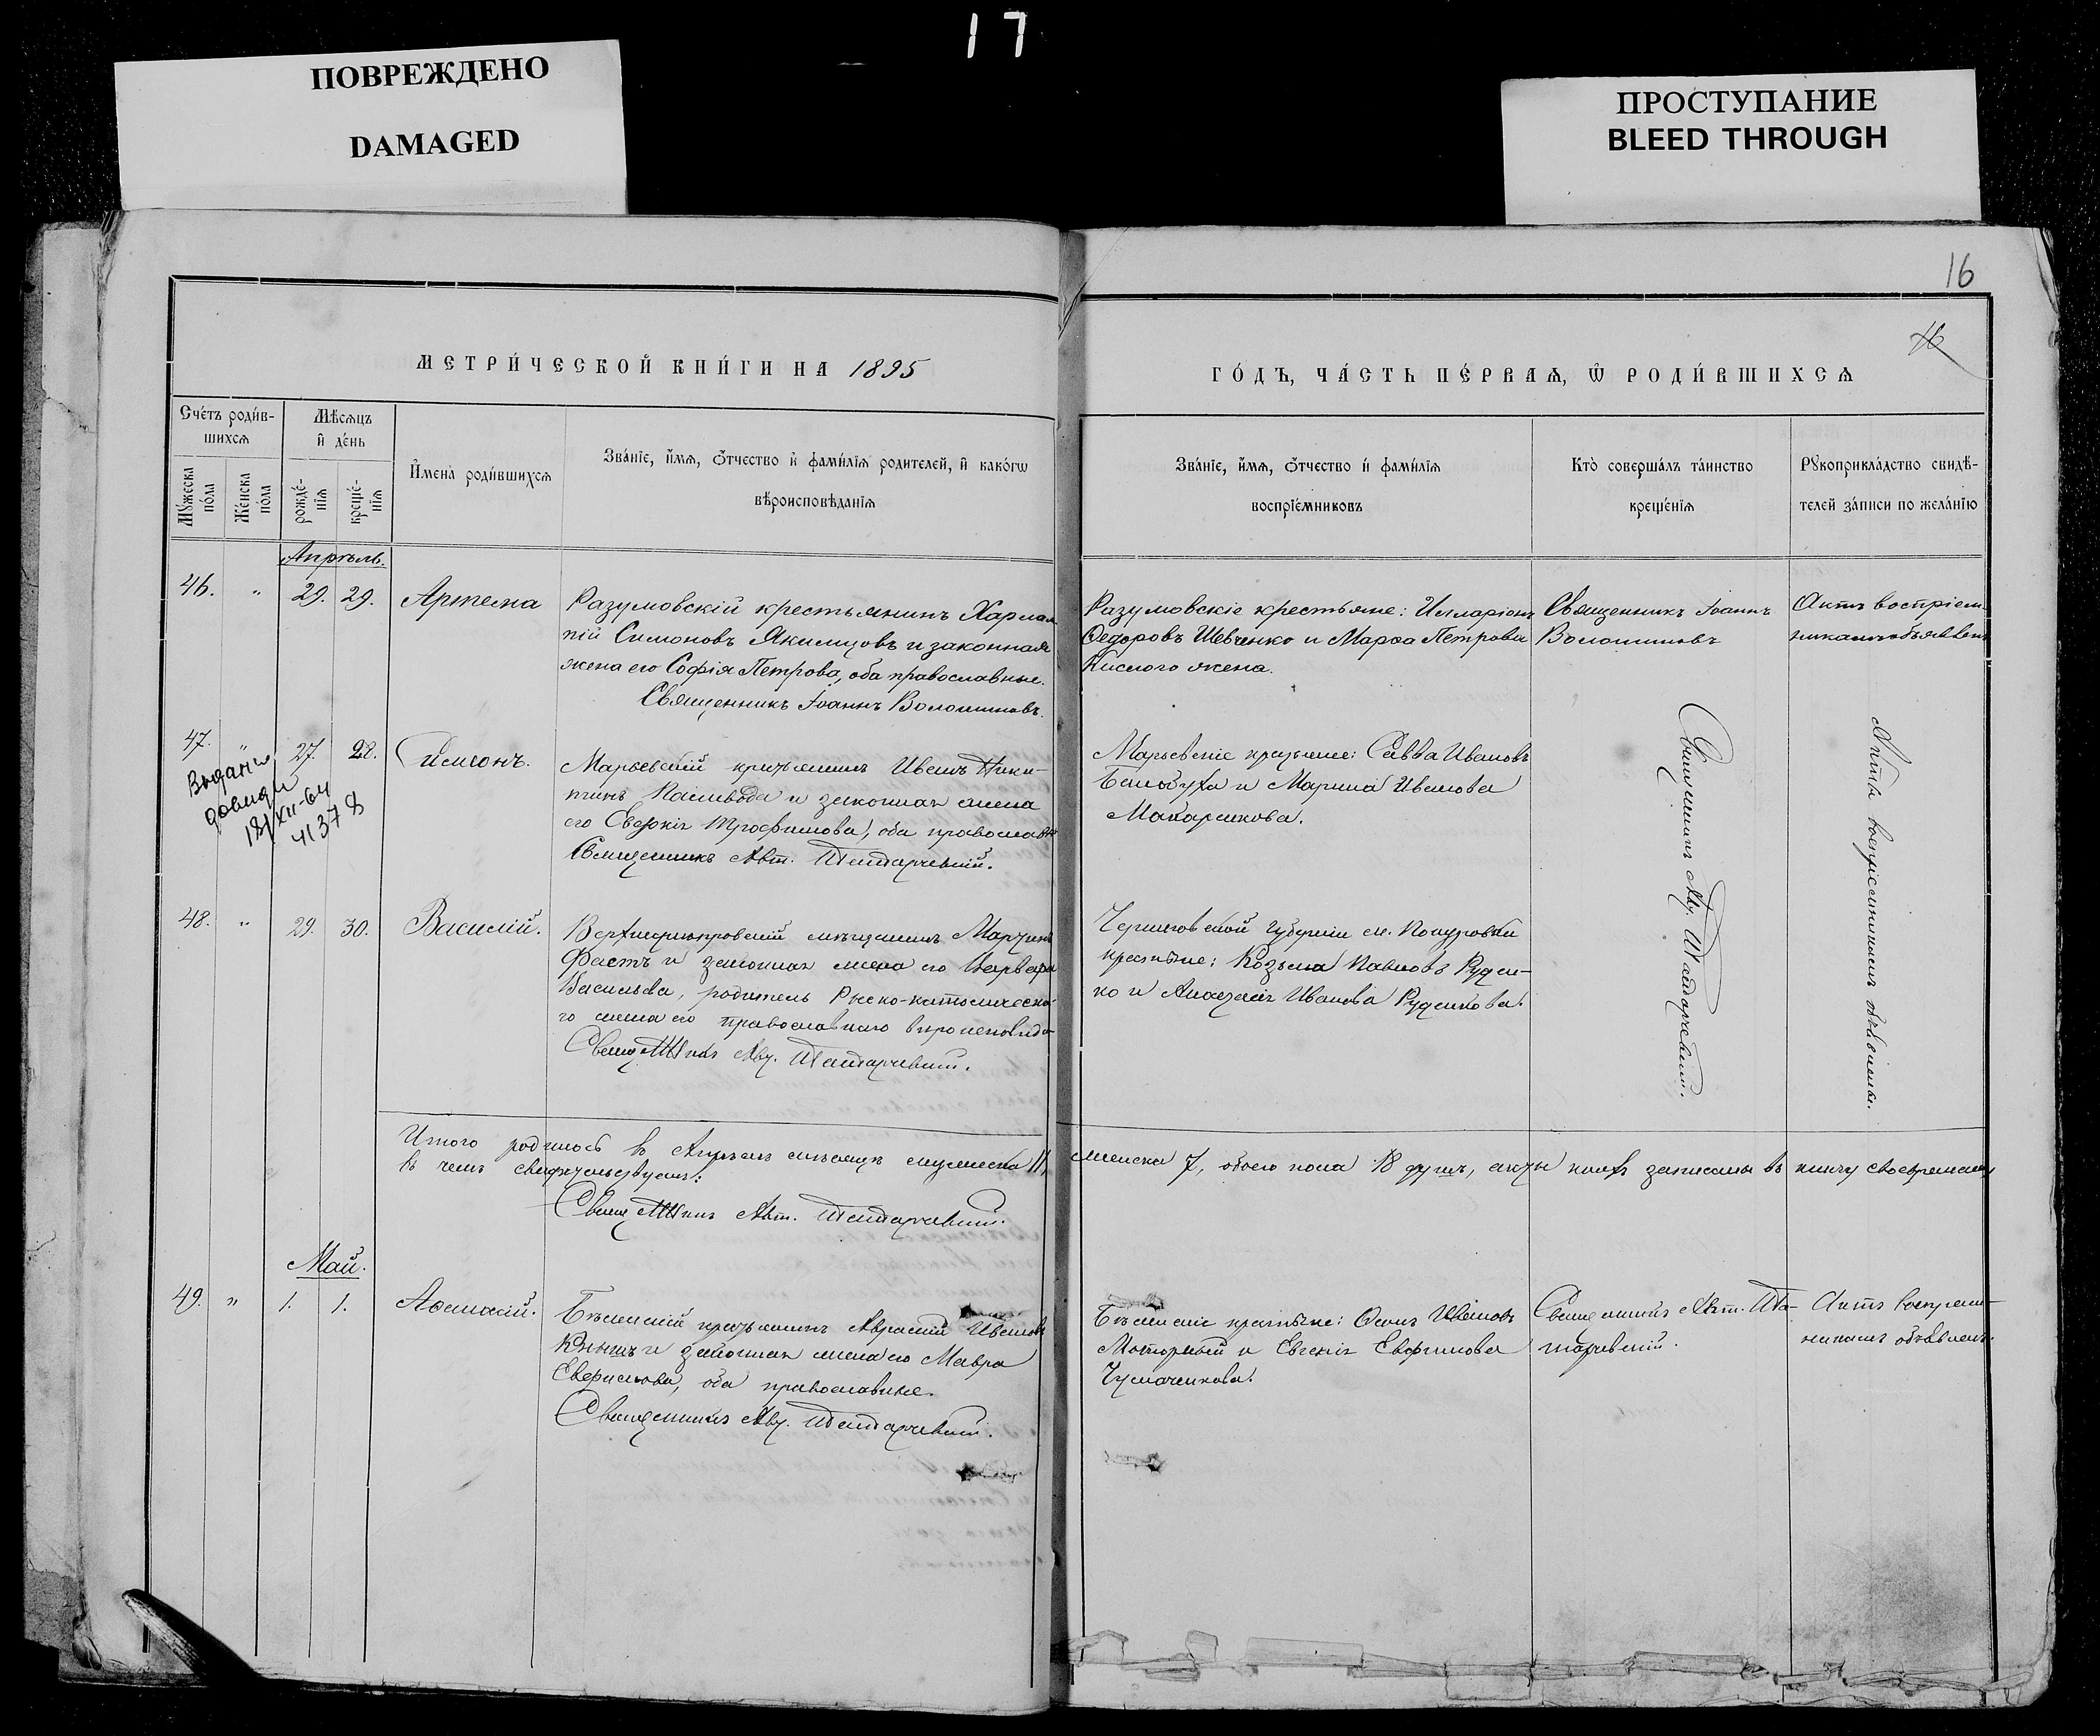 17
ПОВРЕЖДЕНО
DAMAGED
ПРОСТУПАНИЕ
BLEED THROUGH
16
16
МЕТРИ́ЧЕСКОЙ КНИ́ГИ НА 1895
ГО́ДЪ, ЧА́СТЬ ПЕ́РВАѦ, Ѿ РОДИ́ВШИХСѦ
Сче́тъ роди́в-
шихсѧ
Мꙋжеска по́ла
Же́нска по́ла
Мѣ́сѧцъ и҆ де́нь
рожде́-
нїѧ
креще́-
нїѧ
И҆мена̀ роди́вшихсѧ
Зва́нїе, и҆́мѧ, ѻ҆́тчество и҆ фами́лїѧ родителей, и҆ како́гѡ
вѣроисповѣ́данїѧ
Зва́нїе, и҆́мѧ, ѻ҆́тчество и҆ фами́лїѧ
воспрїе́мниковъ
Кто̀ соверша́лъ та́инство
креще́нїѧ
Рꙋкоприкла́дство свидѣ́-
телей за́писи по жела́нїю
Апрѣль.
46. " 29. 29. Артема
Разумовскій крестьянинъ Харлам
пій Симоновъ Якимцовъ и законная
жена его Софія Петрова, оба православные.
Священникъ Іоаннъ Волошиновъ.
Разумовскіе крестьяне: Илларіонъ
Федоровъ Шевченко и Марѳа Петрова
Кислого жена.
Священникъ Іоаннъ
Волошиновъ
Актъ воспріем
никамъ объявленъ
47. " 27. 28. Симеонъ.
Видано
довидк
18/XII-64
41378
Марьевскій крестьянинъ Иванъ Ники-
тинъ Паливода и законная жена
его Евдокія Трофимова, оба православн
Священникъ Ант. Шатарчевскій.
Марьевскіе крестьяне: Савва Ивановъ
Бѣлобуха и Марина Иванова
Макаренкова.
Священникъ Ант. Шатарчевскій.
Акты воспріемникамъ объявлены.
48. " 29. 30. Василій.
Верхнеднѣпровскій мѣщанинъ Марцинъ
Фастъ и законная жена его Варвара
Васильева, родитель Римско-католическо-
го жена его православнаго вѣроисповѣда-
Священникъ Ант. Шатарчевскій.
Черниговской губерніи м. Понуровки
крестьяне: Козьма Павловъ Руден-
ко и Анастасія Иванова Руденкова.
Итого родилось въ Апрѣлѣ мѣсяцѣ мужеска 11, женска 7, обоего пола 18 душъ, акты коихъ записаны въ книгу своевременно
въ чемъ свидѣтельствуетъ:
Священникъ Ант. Шатарчевскій.
Май.
49. " 1. 1. Аѳанасій.
Бѣленскій крестьянинъ Аврамій Ивановъ
Кнышъ и законная жена его Мавра
Евфимова, оба православные.
Священникъ Ант. Шатарчевскій.
Бѣленскіе крестьяне: Осипъ Ивановъ
Моторный и Евгенія Евфимова
Чумаченкова.
Священникъ Ант. Ша-
тарчевскій.
Актъ воспріем-
никамъ объявленъ.